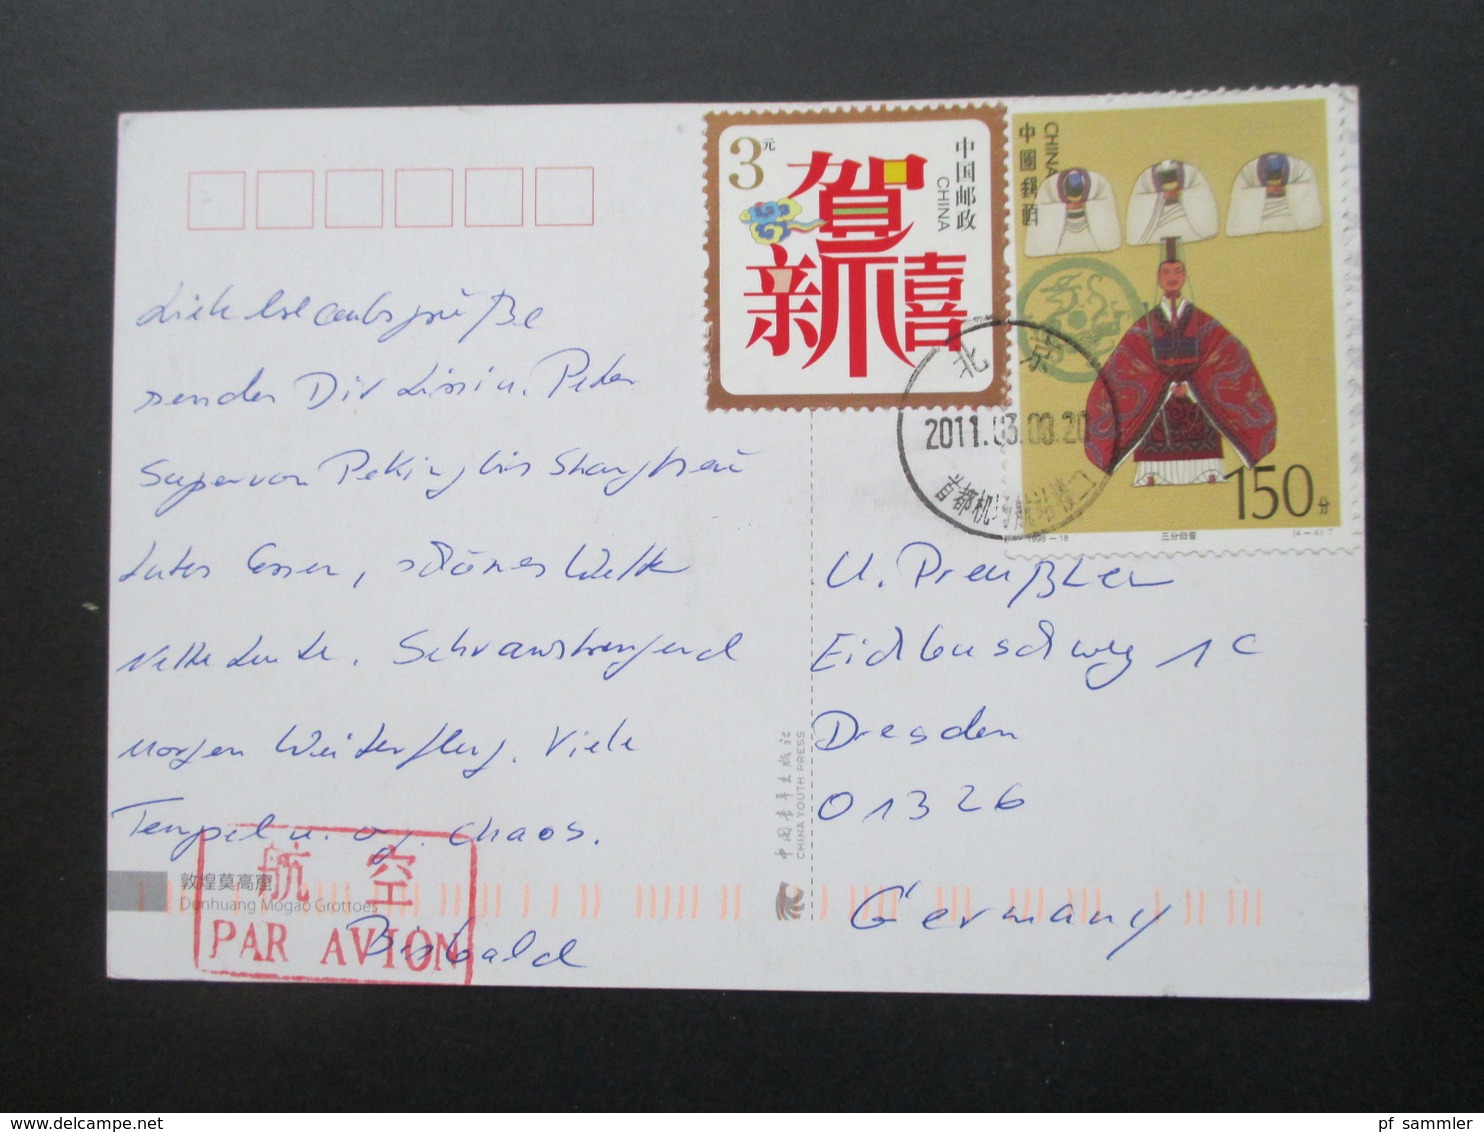 3元
賀
新禧
中国邮政
CHINA
中國郵政
CHINA
150分
1998-18
三分归晋
(4-4)T
北京
2011.03.08.20
首都机场航站楼二
Liebe Urlaubsgrüße
senden Dir Lissi u. Peter
Super von Peking bis Shanghai
Gutes Essen, schönes Wetter
Nette Leute. Sehr anstrengend
Morgen Weiterflug. Viele
Tempel u. og. Chaos.
Bis bald
U. Preußler
Eichbuschweg 1c
Dresden
01326
Germany
中国青年出版社
CHINA YOUTH PRESS
敦煌莫高窟
Dunhuang Mogao Grottoes
航空
PAR AVION
pf_sammler